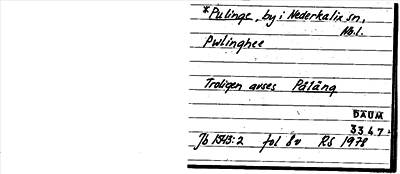 *Pulinge, by i Nederkalix sn,
Nb.l.
Pwlinghee
Troligen avses Påläng
DAUM
3347
Jb 1543:2 fol 8v RS 1978